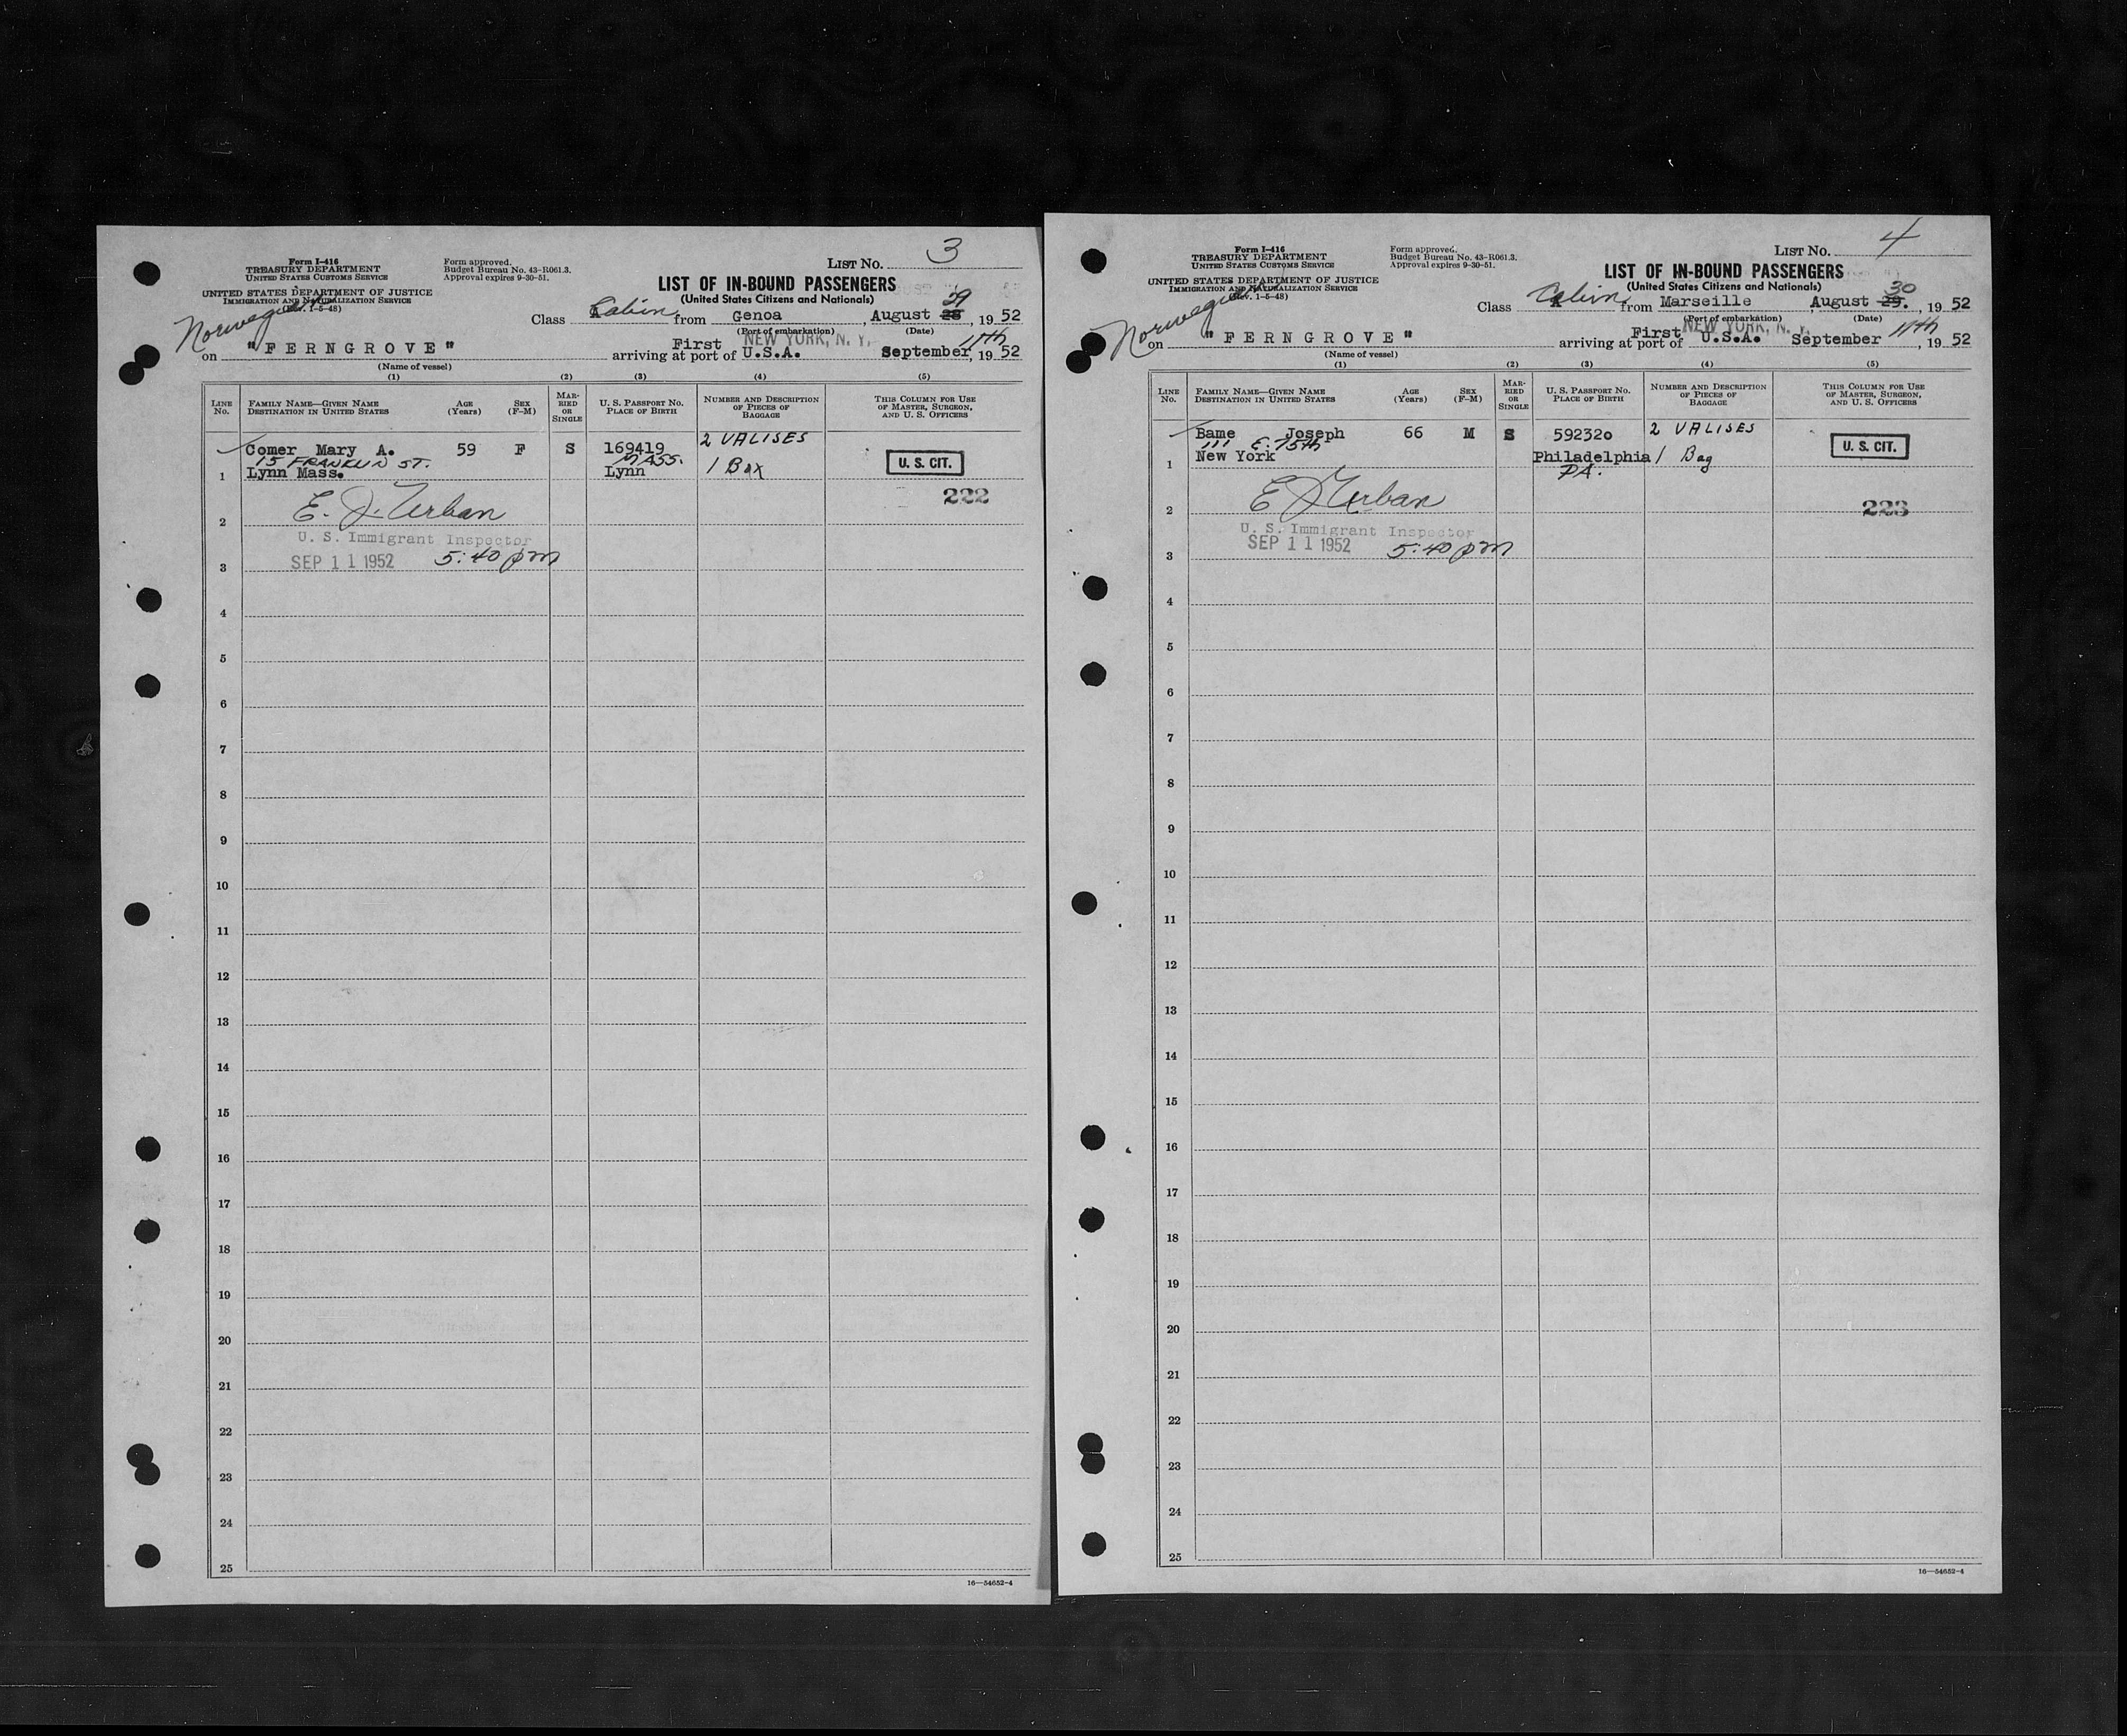 Form I-416
TREASURY DEPARTMENT
UNITED STATES CUSTOMS SERVICE
UNITED STATES DEPARTMENT OF JUSTICE
IMMIGRATION AND NATURALIZATION SERVICE
(Rev. 1-5-48)
Form approved.
Budget Bureau No. 43-R061.3.
Approval expires 9-30-51.
LIST NO. 3
LIST OF IN-BOUND PASSENGERS
(United States Citizens and Nationals)
Norwegian
Class Cabin from Genoa, August 28 29, 1952
(Port of embarkation) (Date)
on "FERNGROVE" arriving at port of First U.S.A. NEW YORK, N. Y. September 11th, 1952
(Name of vessel)
(1) (2) (3) (4) (5)
LINE NO. FAMILY NAME—GIVEN NAME DESTINATION IN UNITED STATES AGE (Years) SEX (F-M) MARRIED OR SINGLE U. S. PASSPORT NO. PLACE OF BIRTH NUMBER AND DESCRIPTION OF PIECES OF BAGGAGE THIS COLUMN FOR USE OF MASTER, SURGEON, AND U. S. OFFICERS
Comer Mary A. 59 F S 169419 2 VALISES
15 FRANKLIN ST. MASS. U. S. CIT.
1 Lynn Mass. Lynn 1 Box
222
2 E. J. Urban
U. S. Immigrant Inspector
3 SEP 11 1952 5:40 pm
4
5
6
7
8
9
10
11
12
13
14
15
16
17
18
19
20
21
22
23
24
25
16—54652-4
Form I-416
TREASURY DEPARTMENT
UNITED STATES CUSTOMS SERVICE
UNITED STATES DEPARTMENT OF JUSTICE
IMMIGRATION AND NATURALIZATION SERVICE
(Rev. 1-5-48)
Form approved.
Budget Bureau No. 43-R061.3.
Approval expires 9-30-51.
LIST NO. 4
LIST OF IN-BOUND PASSENGERS
(United States Citizens and Nationals)
Norwegian
Class Cabin from Marseille, August 29. 30, 1952
(Port of embarkation) (Date)
on "FERNGROVE" arriving at port of First U.S.A. NEW YORK, N. Y. September 11th, 1952
(Name of vessel)
(1) (2) (3) (4) (5)
LINE NO. FAMILY NAME—GIVEN NAME DESTINATION IN UNITED STATES AGE (Years) SEX (F-M) MARRIED OR SINGLE U. S. PASSPORT NO. PLACE OF BIRTH NUMBER AND DESCRIPTION OF PIECES OF BAGGAGE THIS COLUMN FOR USE OF MASTER, SURGEON, AND U. S. OFFICERS
Bame Joseph 66 M S 592320 2 VALISES
111 E. 75th U. S. CIT.
1 New York Philadelphia 1 Bag
PA.
223
2 E J Urban
U. S. Immigrant Inspector
3 SEP 11 1952 5:40 pm
4
5
6
7
8
9
10
11
12
13
14
15
16
17
18
19
20
21
22
23
24
25
16—54652-4